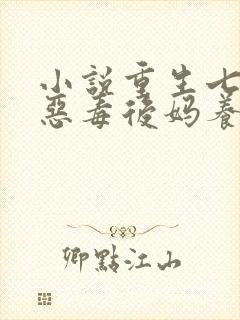 小說重生七
惡毒後媽養
卿點江山